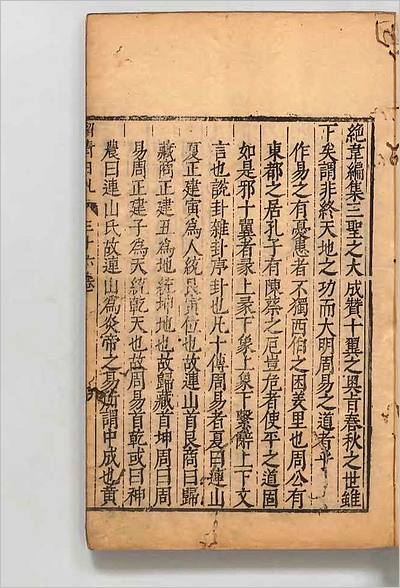 絶韋編集三聖之大成贊十翼之奥旨春秋之世雖
下矣謂非終天地之功而大明周易之道者乎
作易之有憂患者不獨西伯之困羑里也周公有
東都之居孔子有陳蔡之厄豈危者使平之道固
如是邪十翼者彖上彖下象上象下繫辭上下文
言也說卦雜卦序卦也凡十傳周易者夏曰連山
夏正建寅爲人統艮寅位也故連山首艮商曰歸
藏商正建丑爲地統坤地也故歸藏首坤周曰周
易周正建子爲天統乾天也故周易首乾或曰神
農曰連山氏故連山爲炎帝之易所謂中成也黃
留青日札 三十六卷